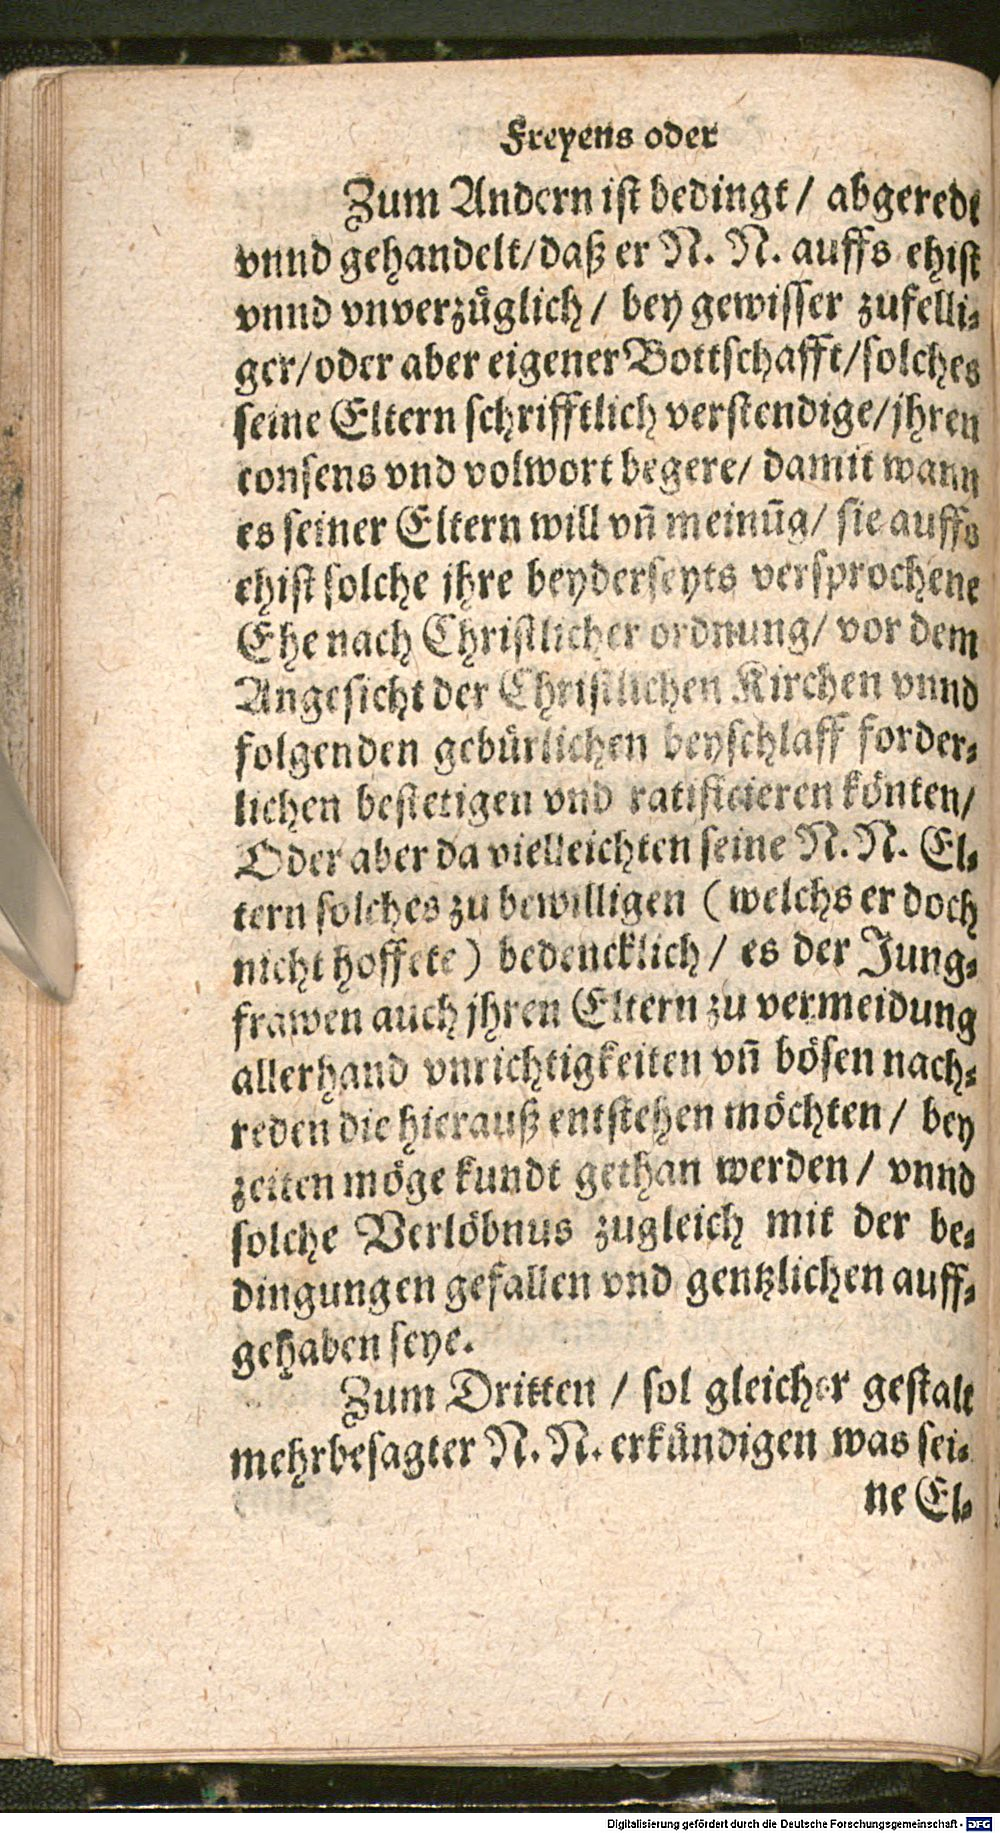 Freyens oder
Zum Andern ist bedingt / abgeredt
vnnd gehandelt/daß er N. N. auffs ehist
vnnd vnverzüglich / bey gewisser zufelli-
ger/oder aber eigener Bottschafft/solches
seine Eltern schrifftlich verstendige/jhren
consens vnd volwort begere/ damit wann
es seiner Eltern will vñ meinūg/ sie auffs
ehist solche jhre beyderseyts versprochene
Ehe nach Christlicher ordnung/ vor dem
Angesicht der Christlichen Kirchen vnnd
folgenden gebürlichen beyschlaff forder-
lichen bestetigen vnd ratificieren könten/
Oder aber da vielleichten seine N. N. El-
tern solches zu bewilligen (welchs er doch
nicht hoffete) bedencklich / es der Jung-
frawen auch jhren Eltern zu vermeidung
allerhand vnrichtigkeiten vñ bösen nach-
reden die hierauß entstehen möchten / bey
zeiten möge kundt gethan werden / vnnd
solche Verlöbnus zugleich mit der be-
dingungen gefallen vnd gentzlichen auff-
gehaben seye.
Zum Dritten / sol gleicher gestalt
mehrbesagter N. N. erkündigen was sei-
ne El-
Digitalisierung gefördert durch die Deutsche Forschungsgemeinschaft - DFG